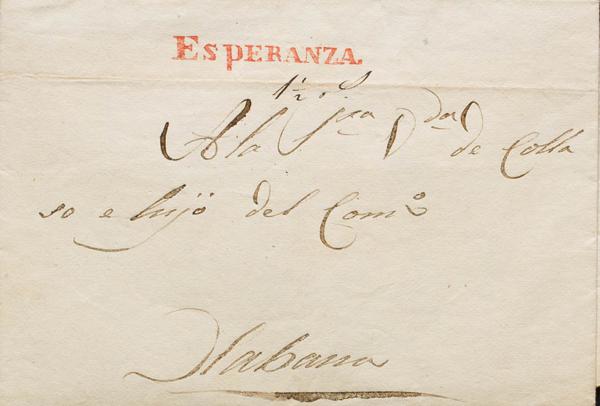 ESPERANZA.
1½ rs.
A la Sra Vda de Colla
so e hijo del Como
Habana